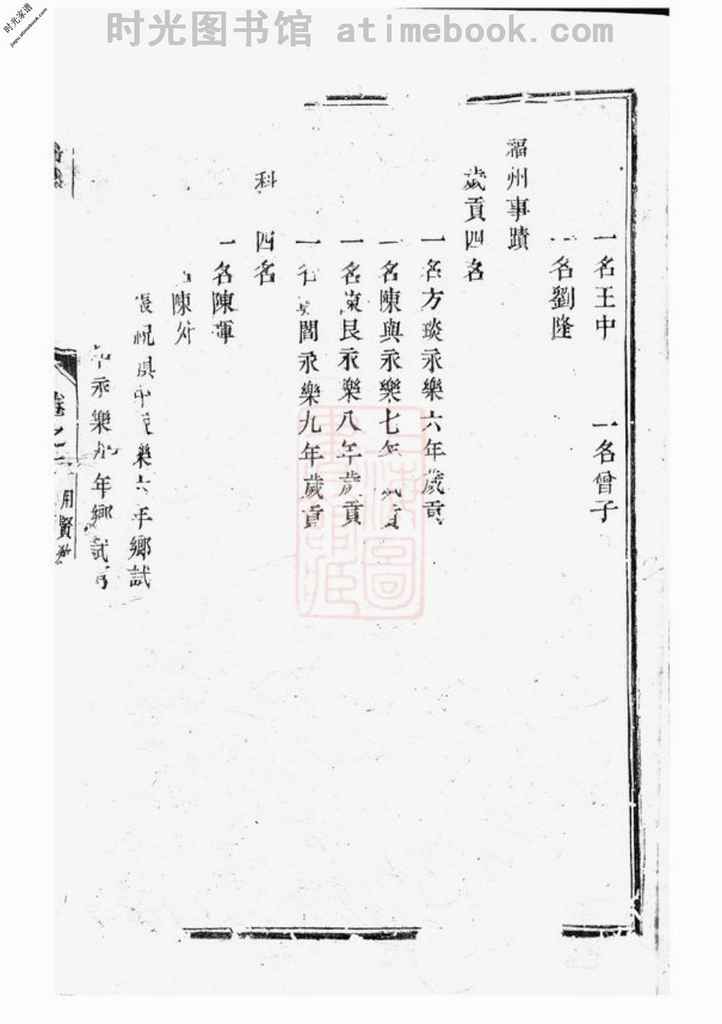 时光图书馆 atimebook.com
时光家谱
jiapu.atimebook.com
一名王中 一名曾子
一名劉隆
福州事蹟
歲貢四名
一名方琰永樂六年歲貢
一名陳與永樂七年歲貢
一名 艮永樂八年歲貢
一 閻永樂九年歲貢
科 四名
一名陳渾
陳
樂六年鄉試
永樂九年鄉試
卷之 用賢